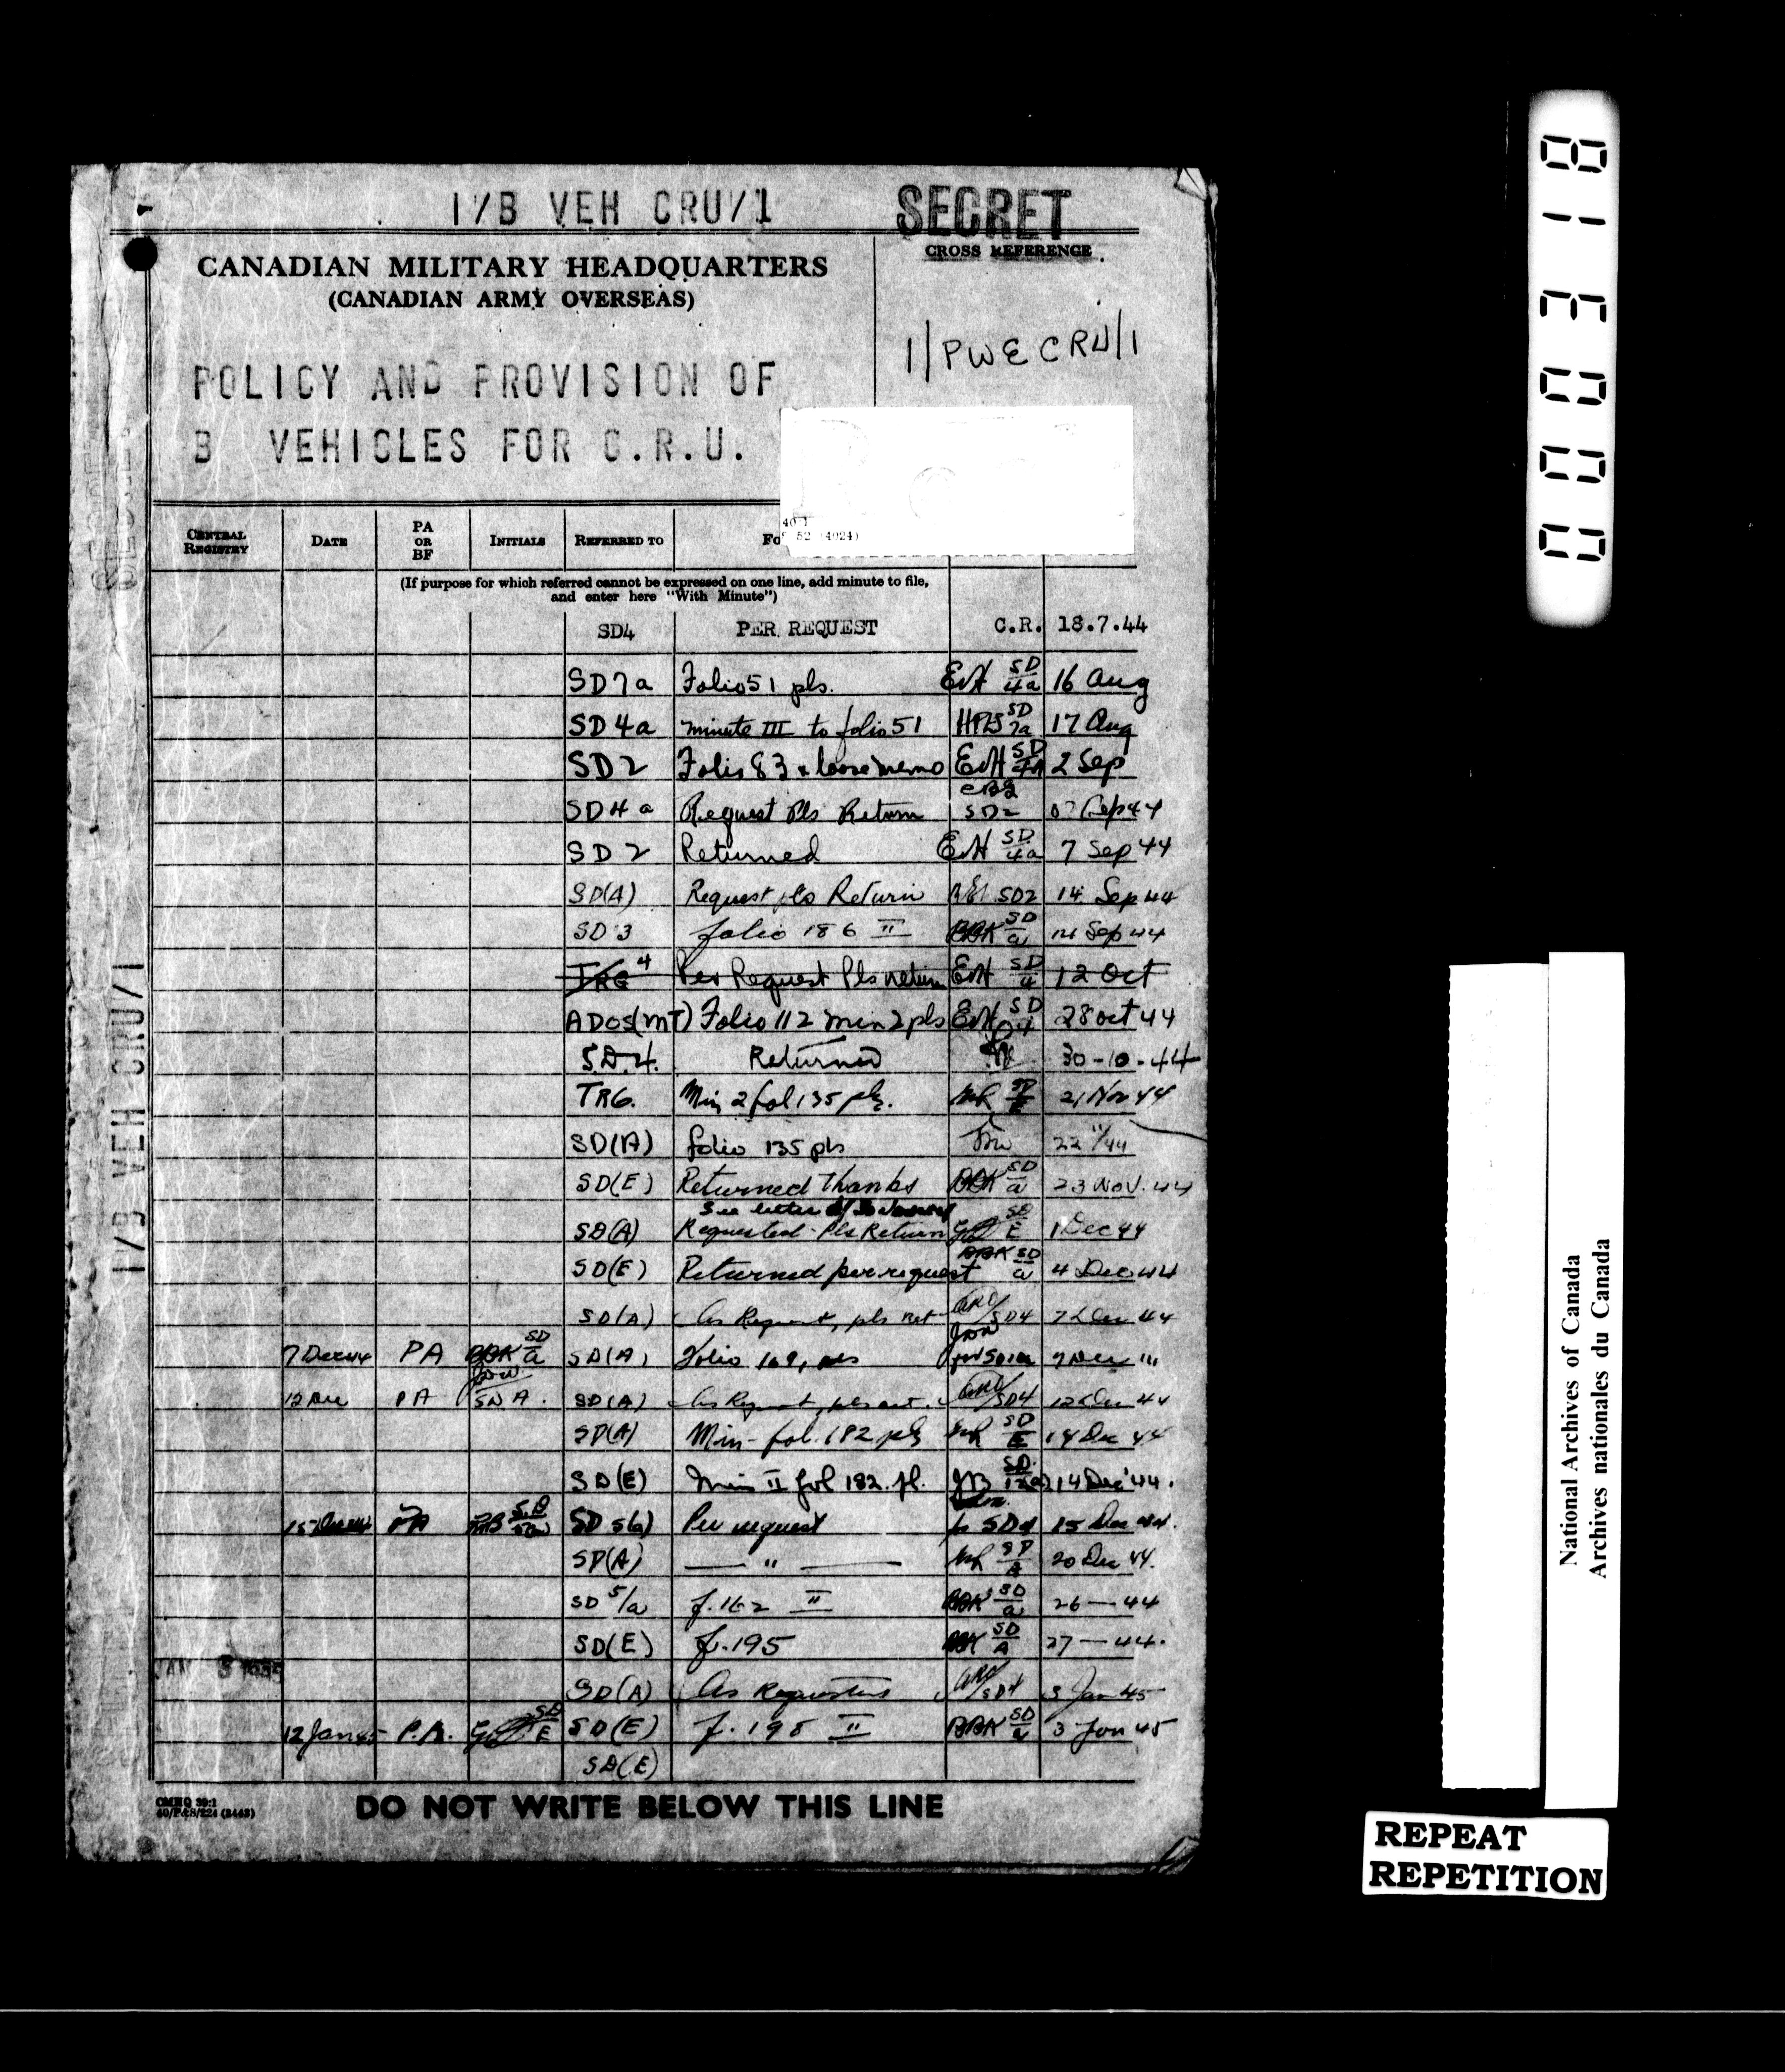 1/B VEH CRU/1
SECRET
CROSS REFERENCE
CANADIAN MILITARY HEADQUARTERS
(CANADIAN ARMY OVERSEAS)
1/PWE CRU/1
POLICY AND PROVISION OF
B VEHICLES FOR C.R.U.
40
52 (4024)
CENTRAL REGISTRY DATE PA OR BF INITIALS REFERRED TO
(If purpose for which referred cannot be expressed on one line, add minute to file,
and enter here "With Minute")
SD4 PER REQUEST C.R. 18.7.44
SD7a Folio 51 pls. EvH SD/4a 16 Aug
SD4a minute III to folio 51 SD/7a 17 Aug
SD2 Folio 83 & loose memo EvH SD/4A 2 Sep
SD4a Request Pls Return SD2 Sep 44
SD2 Returned EvH SD/4a 7 Sep 44
SD(A) Request pls Return SD2 14 Sep 44
SD3 folio 186 II BBK SD/a 14 Sep 44
TRG 4 Per Request Pls return EvH SD/4 12 Oct
ADOS(MT) Folio 112 min 2 pls EvH SD 28 Oct 44
S.D.4. Returned 30-10-44
TRG. Min 2 fol 135 pls. SD/E 21 Nov 44
SD(A) folio 135 pls 22 11/44
SD(E) Returned Thanks BBK SD/a 23 NOV. 44
See letter
SD(A) Requested - Pls Return SD/E 1 Dec 44
SD(E) Returned per request BBK SD/a 4 Dec 44
SD(A) As Request, pls ret SD4 7 Dec 44
7 Dec 44 PA BBK SD/a SD(A) Folio 169, pls 9 Dec
12 Dec PA SD A. SD(A) As Request, pls ret. SD4 12 Dec 44
SD(A) Min - fol. 182 pls SD/E 14 Dec 44
SD(E) Min II fol 182. pl. SD 14 Dec '44.
15 Dec 44 PA SD 5(a) Per request SD4 15 Dec 44.
SD(A) — " — SD/A 20 Dec 44.
SD 5/a f. 162 II BBK SD/a 26 — 44
SD(E) f. 195 BBK SD/A 27 — 44.
JAN 3 1945
SD(A) As Requested SD4 3 Jan 45
12 Jan 45 P.A. SD/E SD(E) f. 198 II BBK SD/a 3 Jan 45
SD(E)
CMHQ 39:1
40/P&S/224 (2443)
DO NOT WRITE BELOW THIS LINE
1/B VEH CRU/1
813000
National Archives of Canada
Archives nationales du Canada
REPEAT
REPETITION